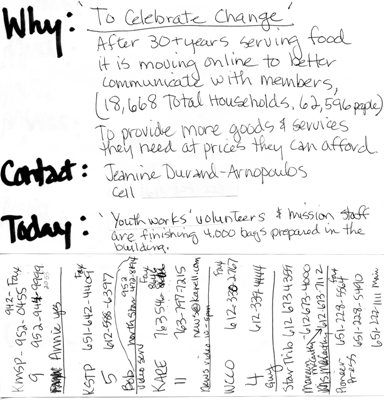 Why: 'To Celebrate Change'
After 30+ years serving food
it is moving online to better
communicate with members,
(18,668 Total Households, 62,596 people)
To provide more goods & services
they need at prices they can afford.
Contact: Jeanine Durand-Arnopoulos
Cell
Today: 'Youth works' volunteers & mission staff
are finishing 4,000 bags prepared in the
building.
942- Fax
KMSP - 952-0455
9 952-944-9999
Annie yes
Fax
KSTP 651-642-4409
5 612-588-6397
Bob 952
north star
video serv
Fax
KARE 763 546
11 763-797-7215
news@kare11.com
News video
Fax
WCCO 612-330-2767
4 612-339-4444
Guy
Star Trib 612 673 4359
612-673-4000
612 673-7112
Fax
Pioneer 651-228-5564
Press 651-228-5490
651-222-1111 main